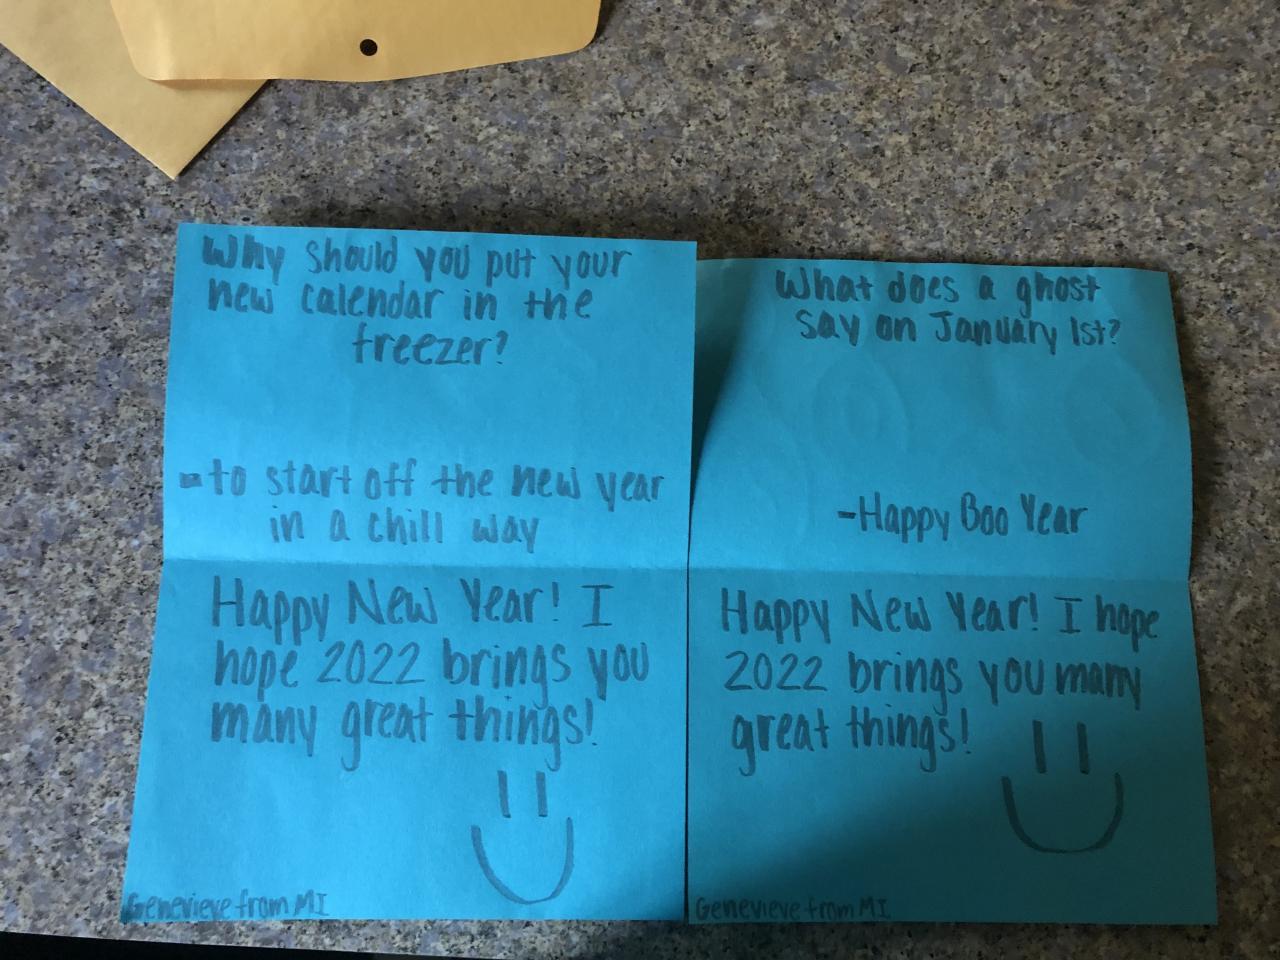 Why should you put your
new calendar in the
freezer?
-to start off the new year
in a chill way
Happy New Year! I
hope 2022 brings you
many great things!
Genevieve from MI
What does a ghost
say on January 1st?
-Happy Boo Year
Happy New Year! I hope
2022 brings you many
great things!
Genevieve from MI